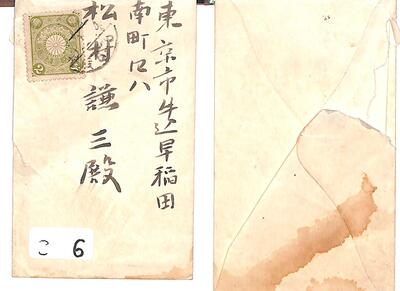 東京市牛込早稲田
南町四八
松村謙三殿
こ 6